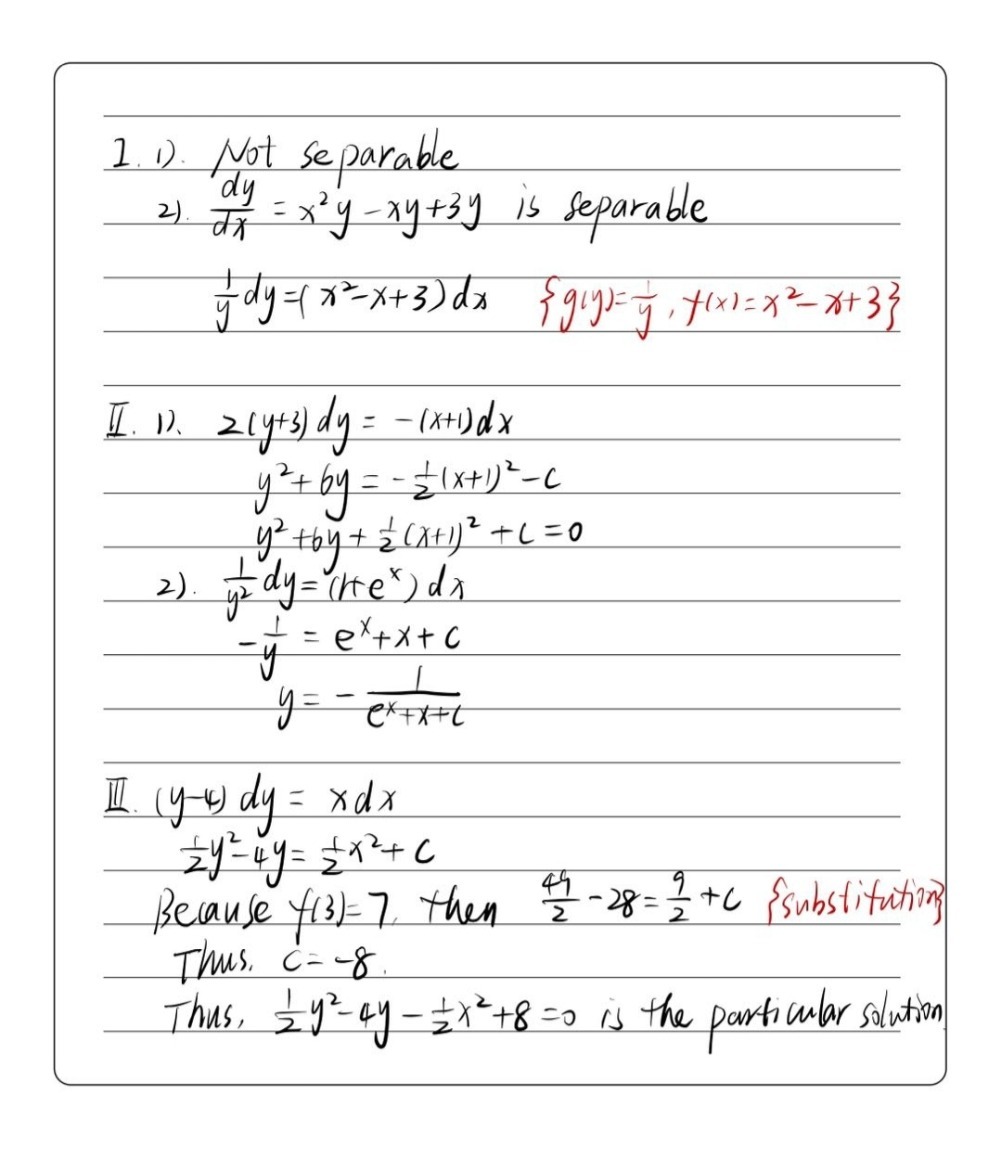 I. 1). Not separable
2). dy/dx = x²y - xy + 3y is separable
1/y dy = (x² - x + 3) dx {g(y) = 1/y, f(x) = x² - x + 3}
II. 1). 2(y+3) dy = -(x+1) dx
y² + 6y = -1/2 (x+1)² - C
y² + 6y + 1/2 (x+1)² + C = 0
2). 1/y² dy = (1+e^x) dx
-1/y = e^x + x + C
y = - 1/(e^x + x + C)
III. (y-4) dy = x dx
1/2 y² - 4y = 1/2 x² + C
Because f(3) = 7, then 49/2 - 28 = 9/2 + C {substitution}
Thus, C = -8.
Thus, 1/2 y² - 4y - 1/2 x² + 8 = 0 is the particular solution